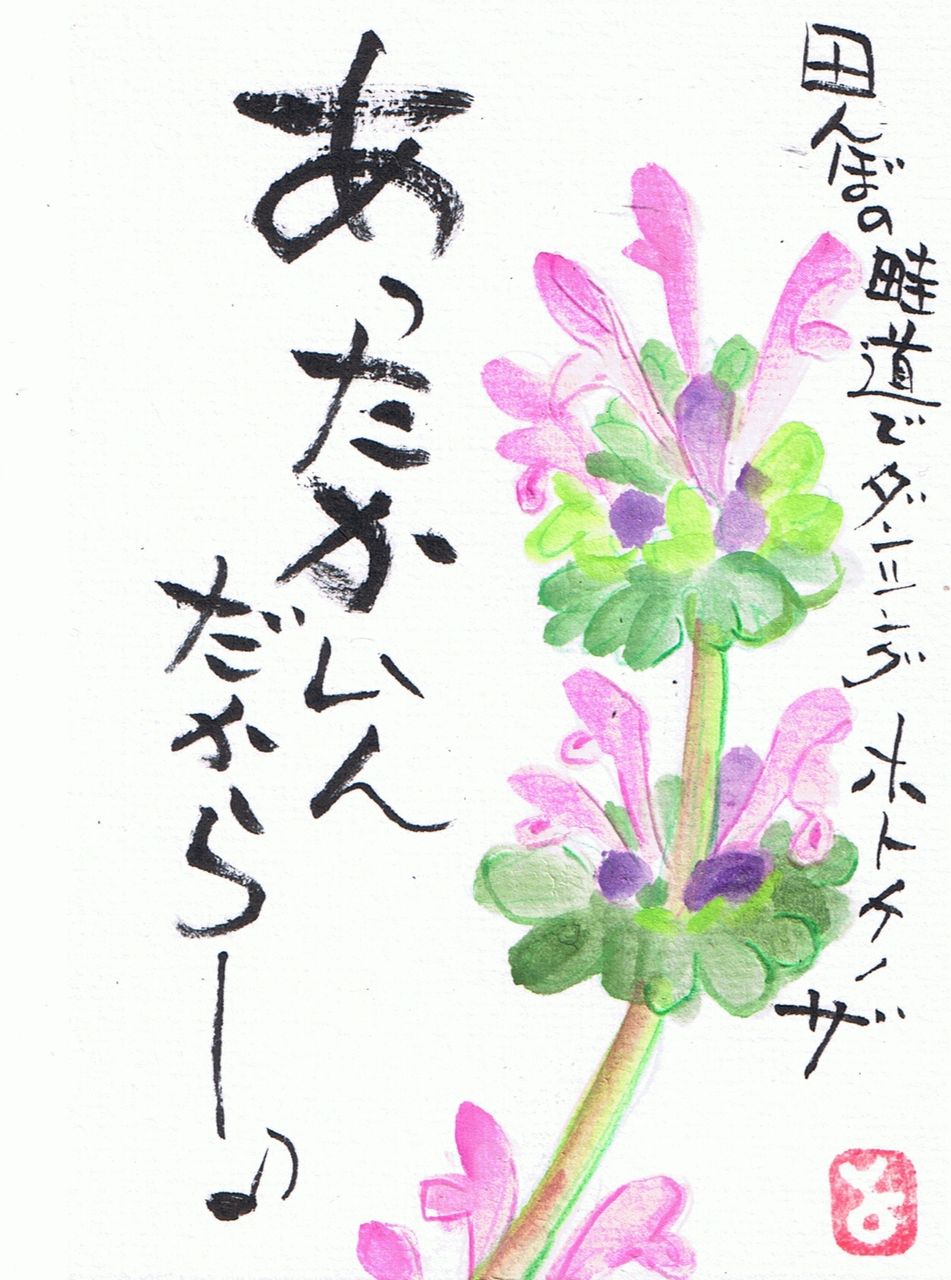 田んぼの畦道でダンシング ホトケノザ
あったかいん
だからー♪